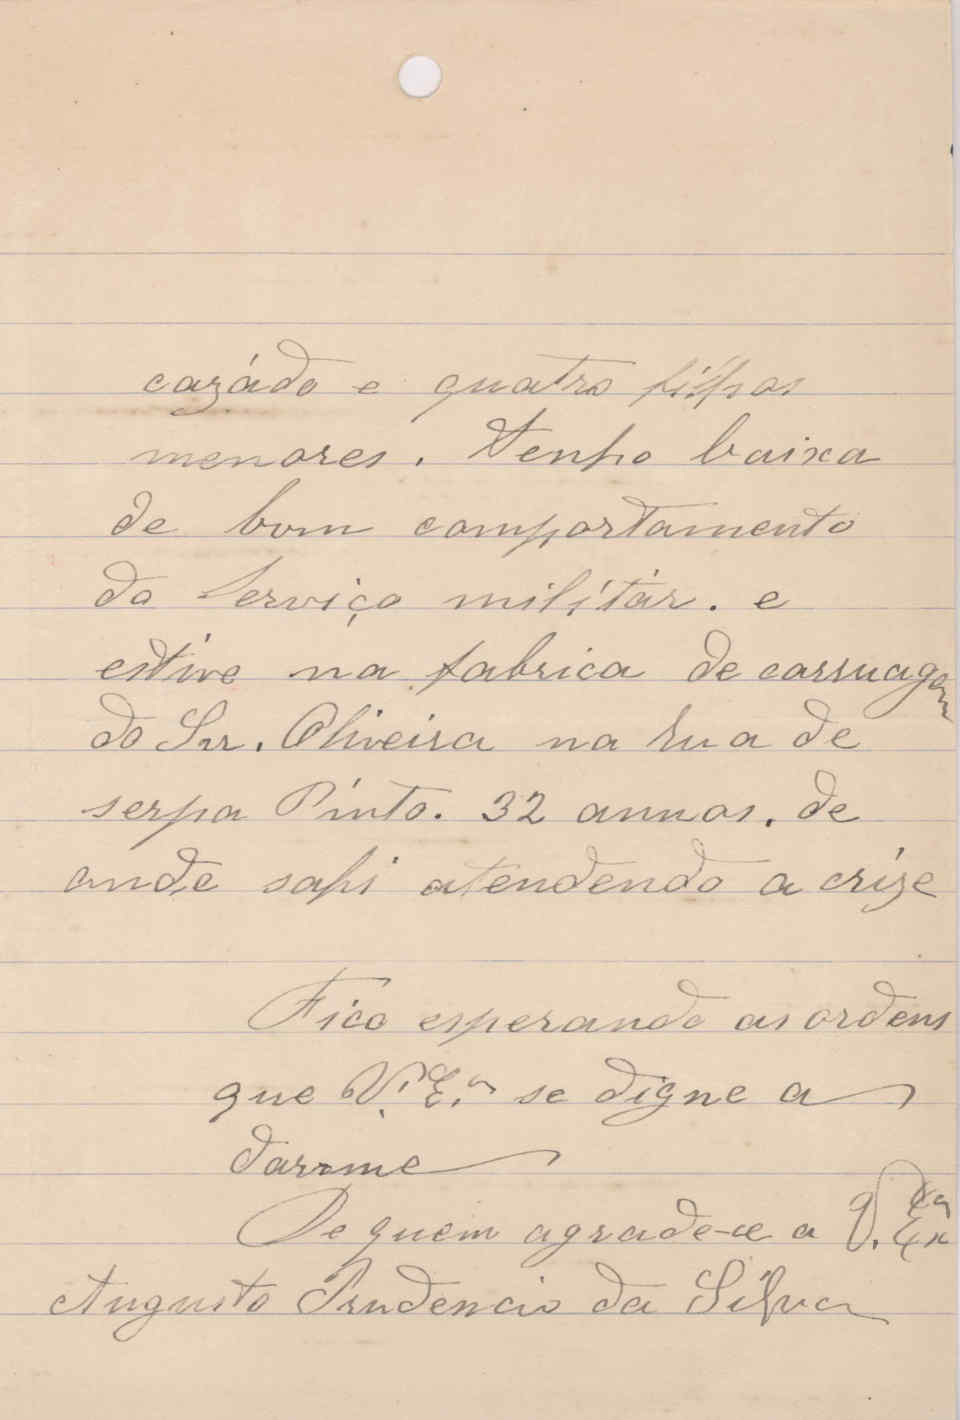 cazádo e quatro filhos
menores. Tenho baixa
de bom comportamento
do Serviço militár. e
estive na fabrica de carruagem
do Snr. Oliveira na Rua de
serpa Pinto. 32 annos. de
onde sahi atendendo a crize
Fico esperando as ordens
que V. E.ª se digne a
darme
De quem agrade-ce a V. Ex.ª
Augusto Prudencio da Silva